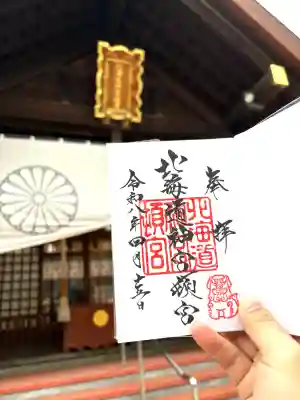 奉拝
北海道神宮頓宮
北海道
頓宮
令和八年四月十五日